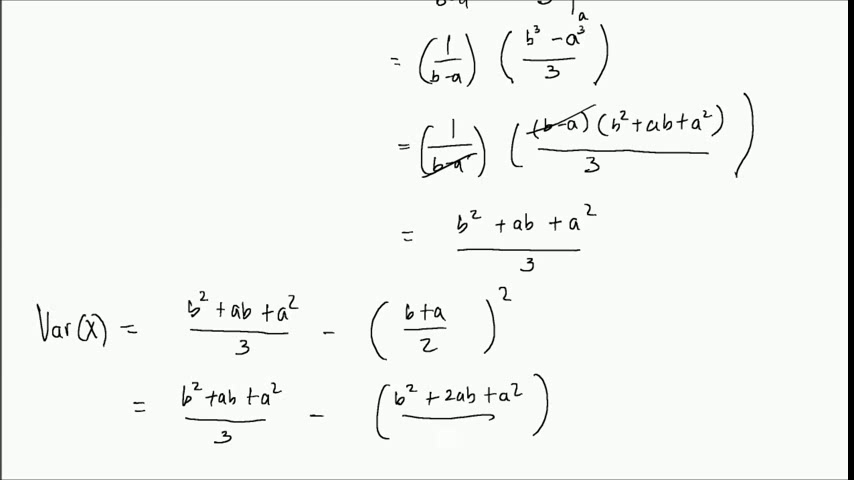 = (1/(b-a)) ((b³ - a³)/3)
= (1/(b-a)) ((b-a)(b² + ab + a²)/3)
= (b² + ab + a²)/3
Var(X) = (b² + ab + a²)/3 - ((b+a)/2)²
= (b² + ab + a²)/3 - (b² + 2ab + a²)